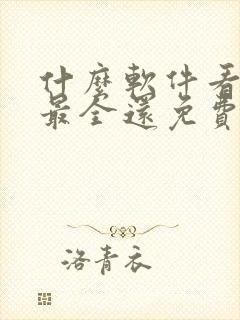 什麼軟件看
最全還免費
洛青衣